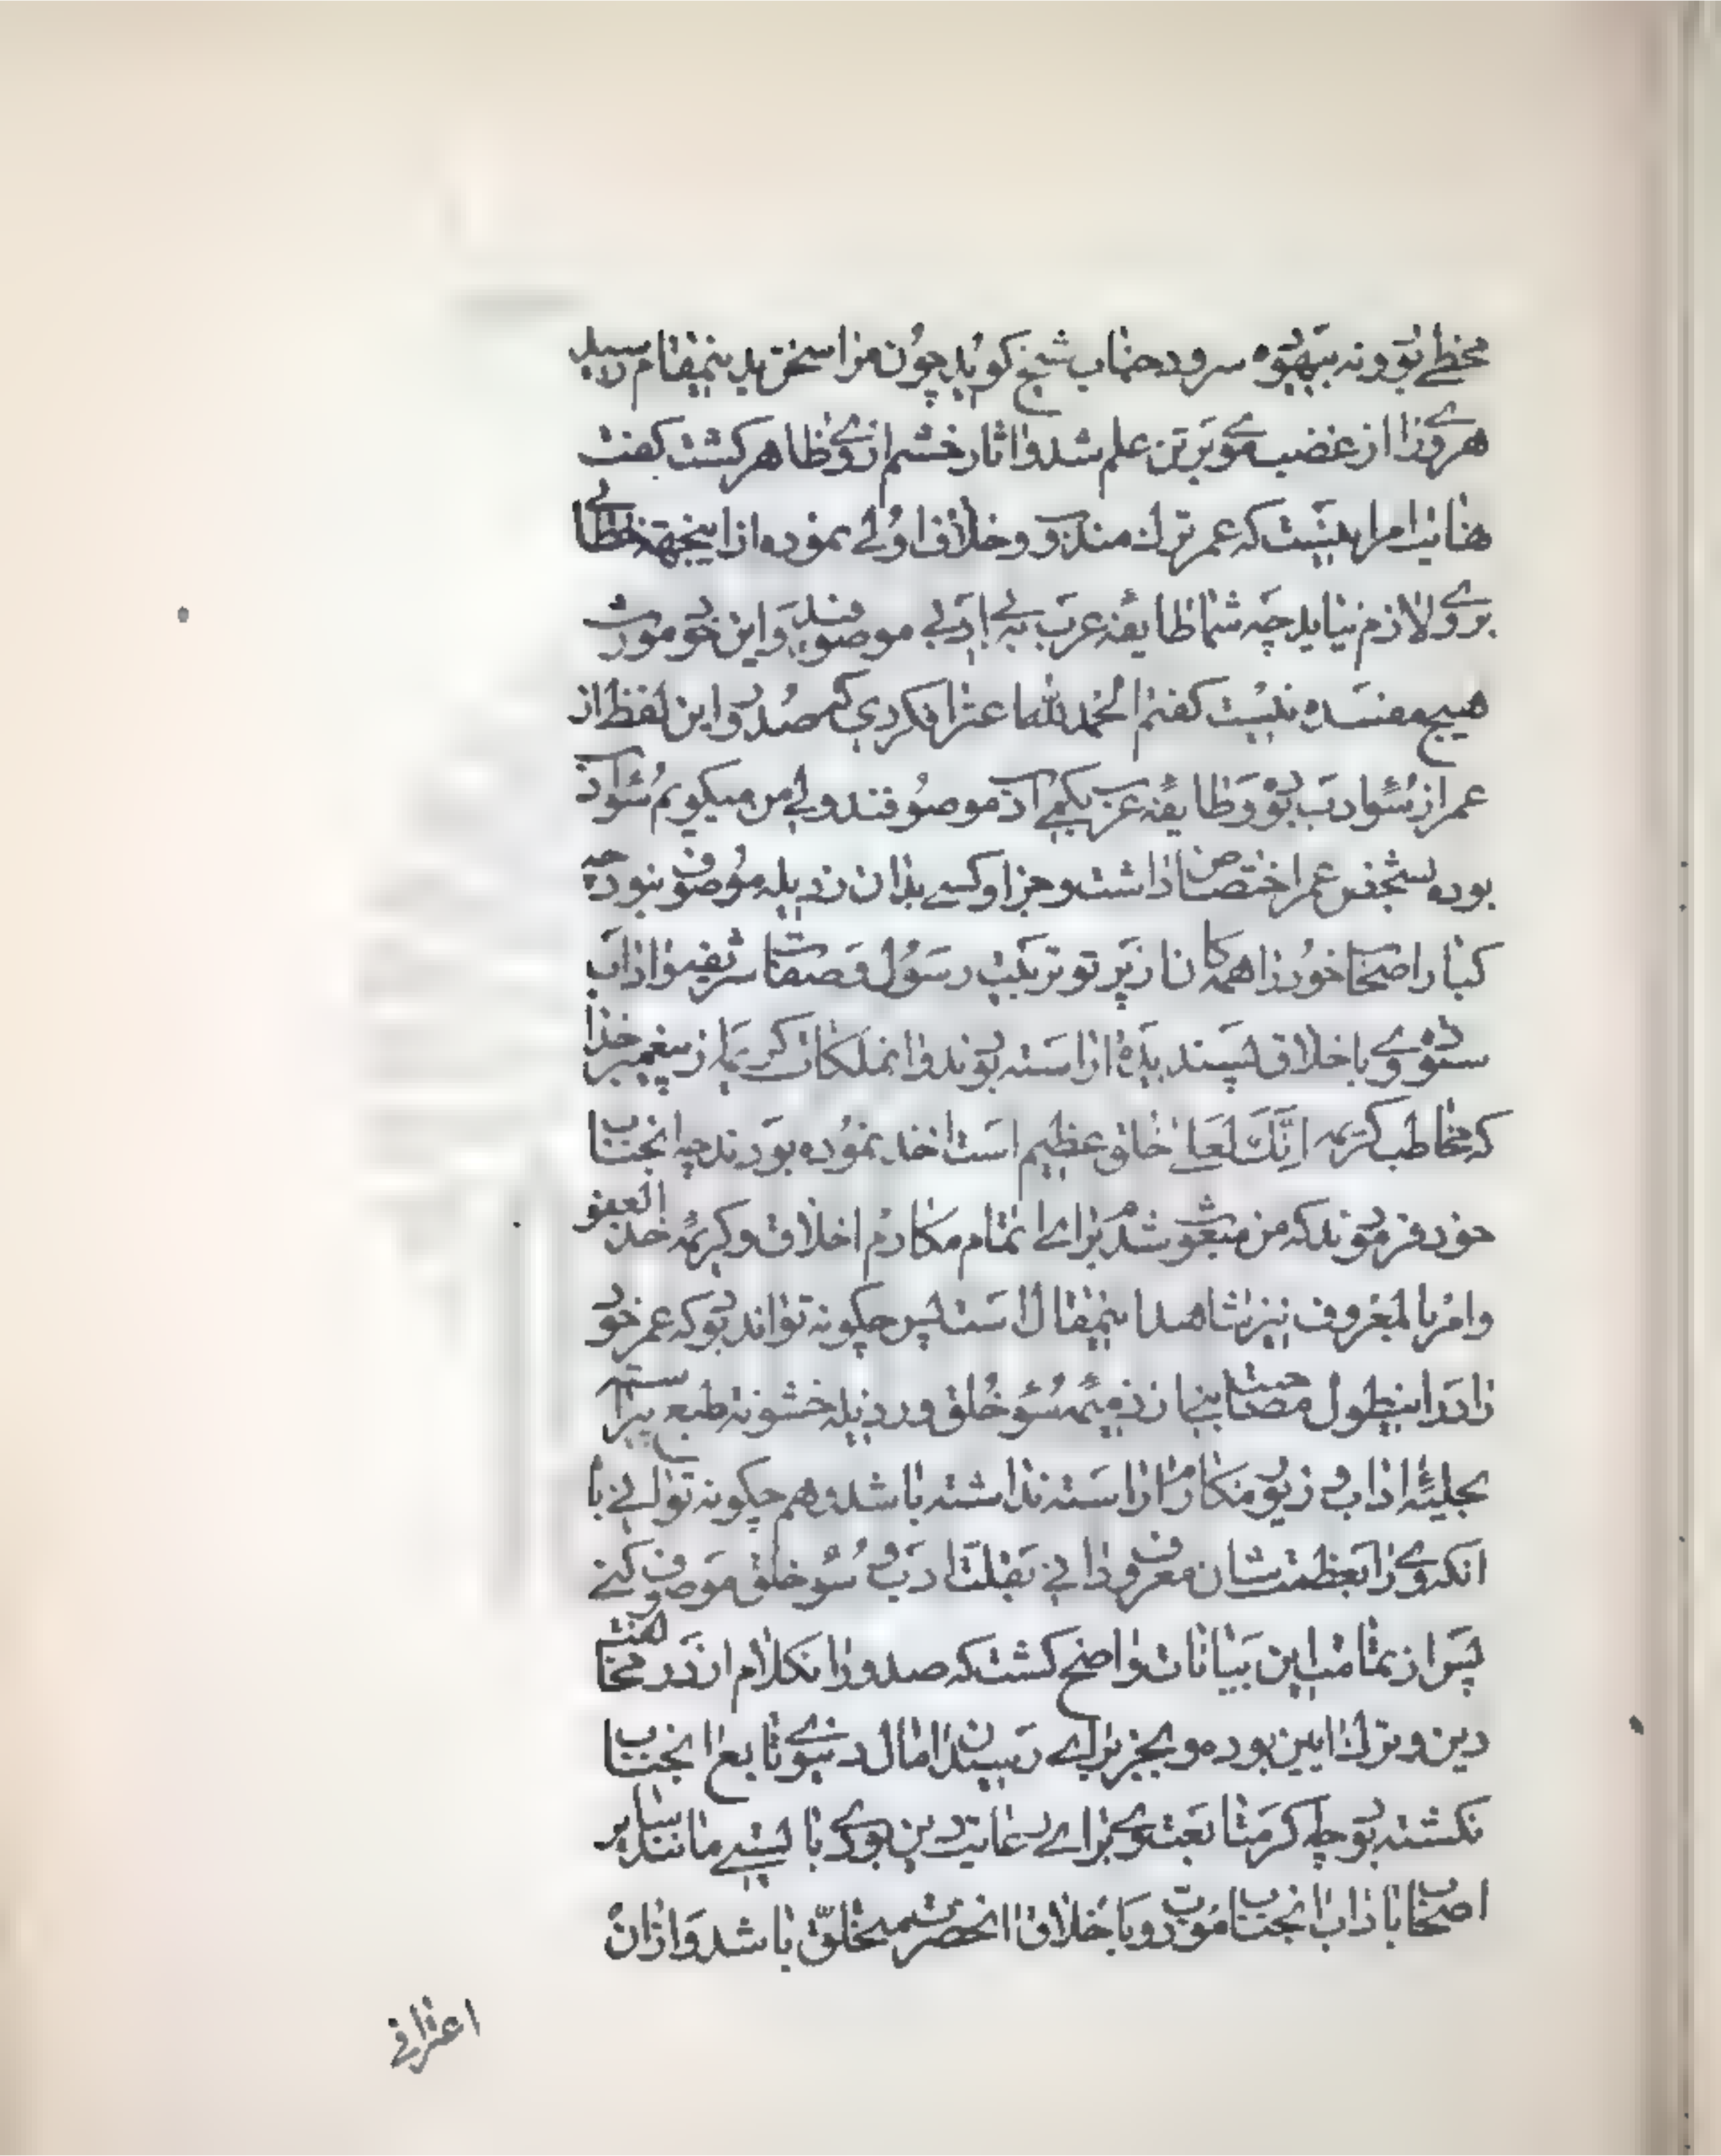 مخطی بود و نه بیهوده سرود جناب شیخ کوید چون مرا سخن بدینمقام رسید
هروی را از غضب موی بر تن علم شد و اثار خشم از وی ظاهر کشت کفت
نهایت امر اینست که عمر ترک مندوب و خلاف اولی نموده از اینجهة خطائی
بر وی لازم نیاید چه شما طایفه عرب به بی ادبی موصوفید و این خود مورث
هیچ مفسده نیست کفتم الحمد لله اعتراف کردی که صدور این لفظ از
عمر از سوء ادب بود و طایفه عرب بکمی ادب موصوفند ولی من میکویم سوء ادب
بوده بشخص عمر اختصاص داشت و جز او کسی بدان رذیله موصوف نبود چه
کبار اصحاب خود را همه کان از پرتو تربیت رسول و صفات شریفه و اداب
ستوده وی باخلاق پسندیده اراسته بودند و انملکات کریمه از پیغمبر خدا
که مخاطب کریمه انک لعلی خلق عظیم است اخذ نموده بودند چه انجناب
خود فرمودند که من مبعوث شدم برای اتمام مکارم اخلاق و کریمه خذ العفو
وامر بالمعروف نیز شاهد اینمقال است پس چکونه تواند بود که عمر خود
را در اینطول مصاحبت از ذمیمه سوء خلق و رذیله خشونة طبع پیراسته
بحلیه اداب و زیور مکارم اراسته نداشته باشد و هم چکونه توانی با
انکه وی را بعظمت شان معروف دانی بقلت ادب و سوء خلق موصوف کنی
پس از تمامت این بیانات واضح کشت که صدور انکلام از در مخالفت
دین و ترک ایین بوده و بجز برای رسیدن امال دنیوی تابع انجناب
نکشته بود چه اکر متابعت وی برای رعایت دین بودی بایستی مانند سایر
اصحاب باداب انجناب مؤدب و باخلاق انحضرت متخلق باشد و از ان
اعترافی